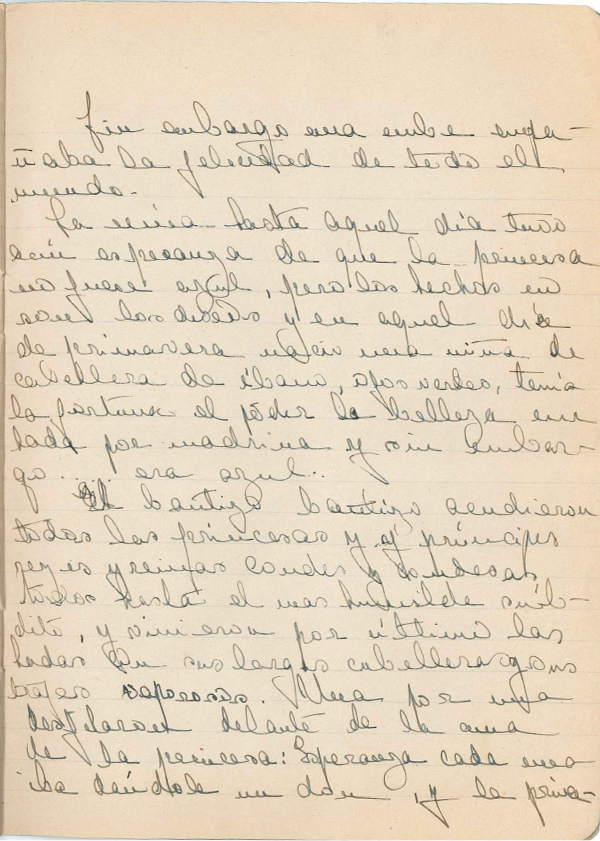 Sin embargo una nube empa-
ñaba la felicidad de todo el
mundo.
La reina hasta aquel día tuvo
aún esperanza de que la princesa
no fuese azul, pero los hechos no
son los deseos y en aquel día
de primavera nació una niña de
cabellera de ébano, ojos verdes, tenía
la fortuna el poder la belleza un
hada por madrina y sin embar-
go..... era azul..
Al bautizo bautizo acudieron
todas las princesas y príncipes
reyes y reinas condes y condesas
todos hasta el mas humilde súb-
dito, y vinieron por último las
hadas con sus largas cabelleras y sus
trajes vaporosos. Una por una
desfilaron delante de la cuna
de la princesa: Esperanza cada una
iba dándole un don, y la prin-